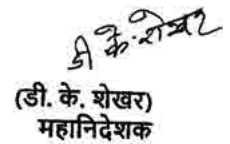 डी के. शेखर
(डी. के. शेखर)
महानिदेशक